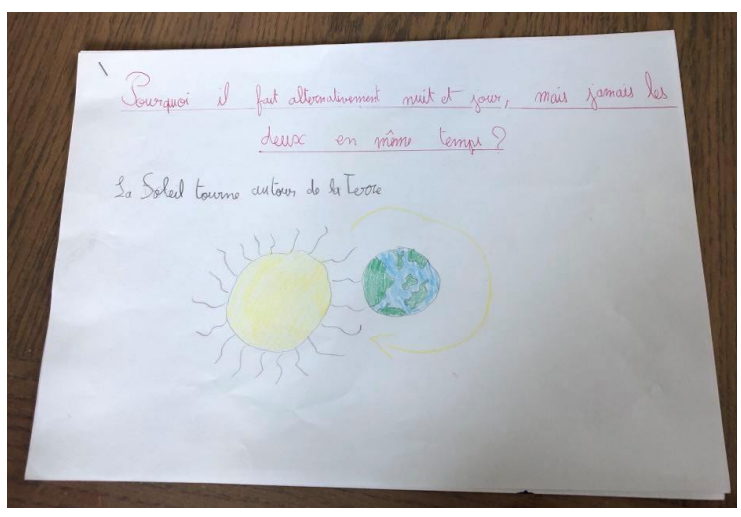 Pourquoi il fait alternativement nuit et jour, mais jamais les
deux en même temps ?
La Soleil tourne autour de la Terre